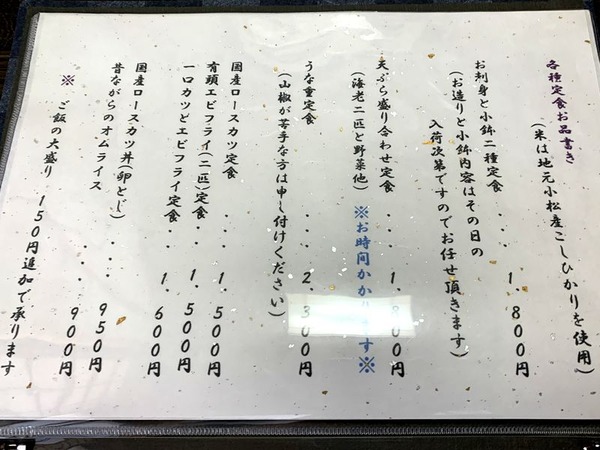 各種定食お品書き
(米は地元小松産こしひかりを使用)
お刺身と小鉢二種定食・・・1.800円
(お造りと小鉢内容はその日の
入荷次第ですのでお任せ頂きます)
天ぷら盛り合わせ定食・・・1.800円
(海老二匹と野菜他) ※お時間かかります※
うな重定食・・・2.300円
(山椒が苦手な方は申し付けください)
国産ロースカツ定食・・・1.500円
有頭エビフライ(二匹)定食・・1.500円
一口カツとエビフライ定食・1.600円
国産ロースカツ丼(卵とじ)・・・950円
昔ながらのオムライス・・・900円
※ご飯の大盛り 150円追加で承ります